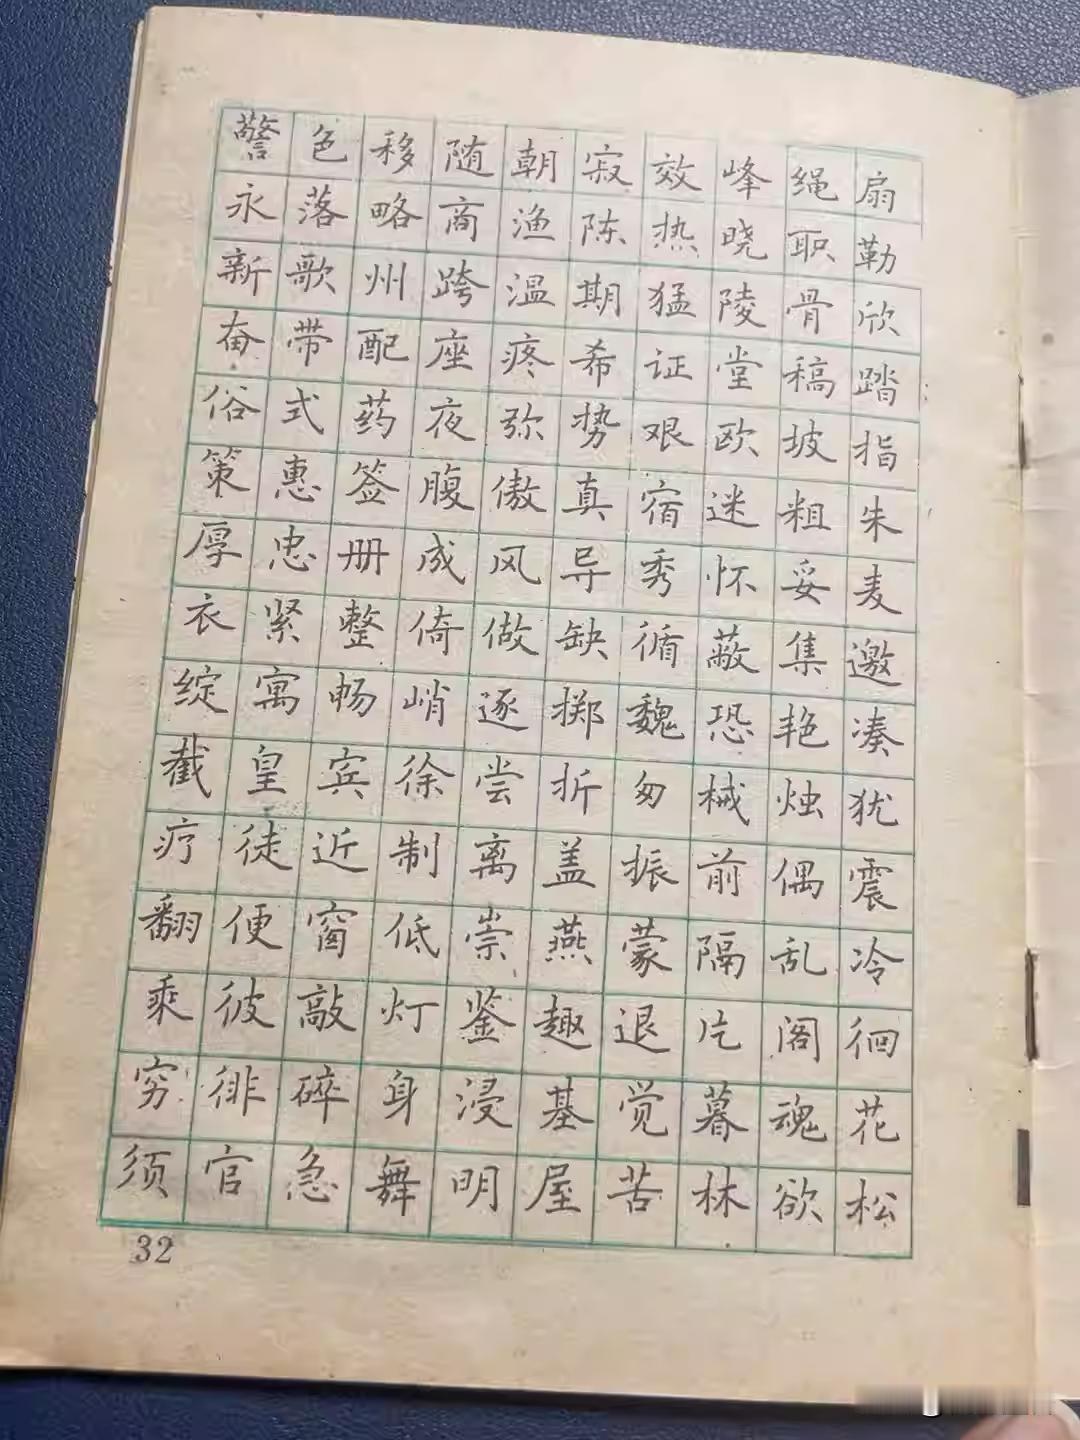 警色移随朝寂效峰绳扇
永落略商渔陈热晓职勒
新歌州跨温期猛陵骨欣
奋带配座疼希证堂稿踏
俗式药夜弥势艰欧坡指
策惠签腹傲真宿迷粗朱
厚忠册成风导秀怀妥麦
衣紧整倚做缺循蔽集邀
绽寓畅峭逐掷魏恐艳凑
截皇宾徐尝折匆械烛犹
疗徒近制离盖振前偶震
翻便窗低崇燕蒙隔乱冷
乘彼敲灯鉴趣退片阁徊
穷徘碎身浸基觉暮魂花
须官急舞明屋苦林欲松
32